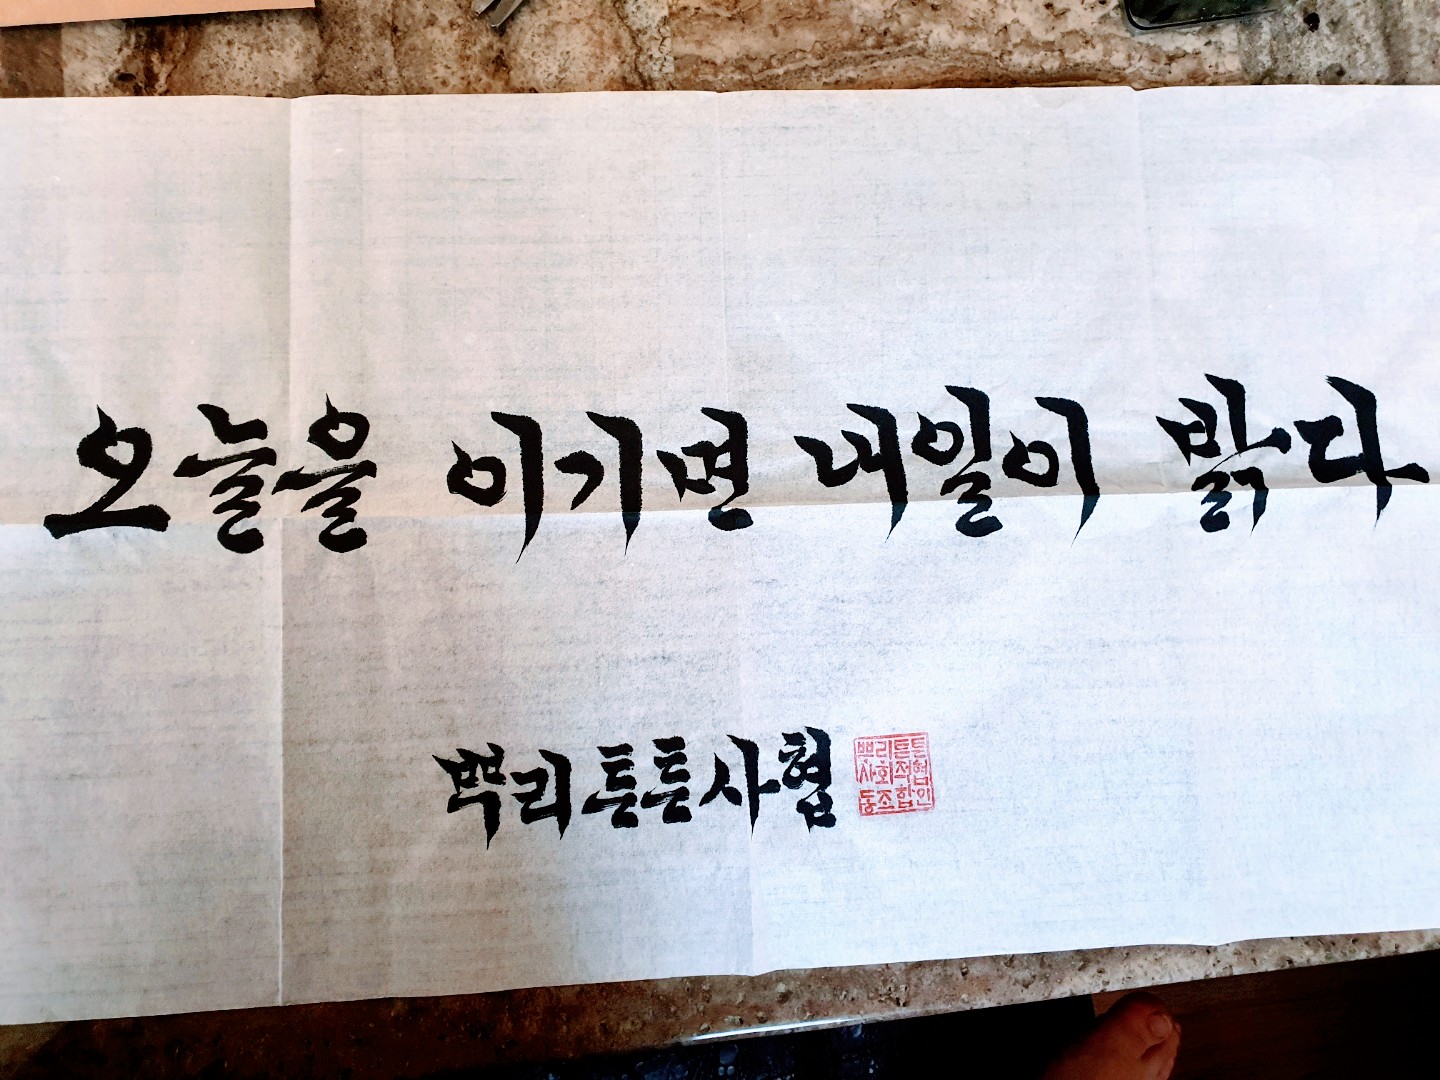 오늘을 이기면 내일이 밝다
뿌리튼튼사협
뿌리튼튼
사회적협
동조합인